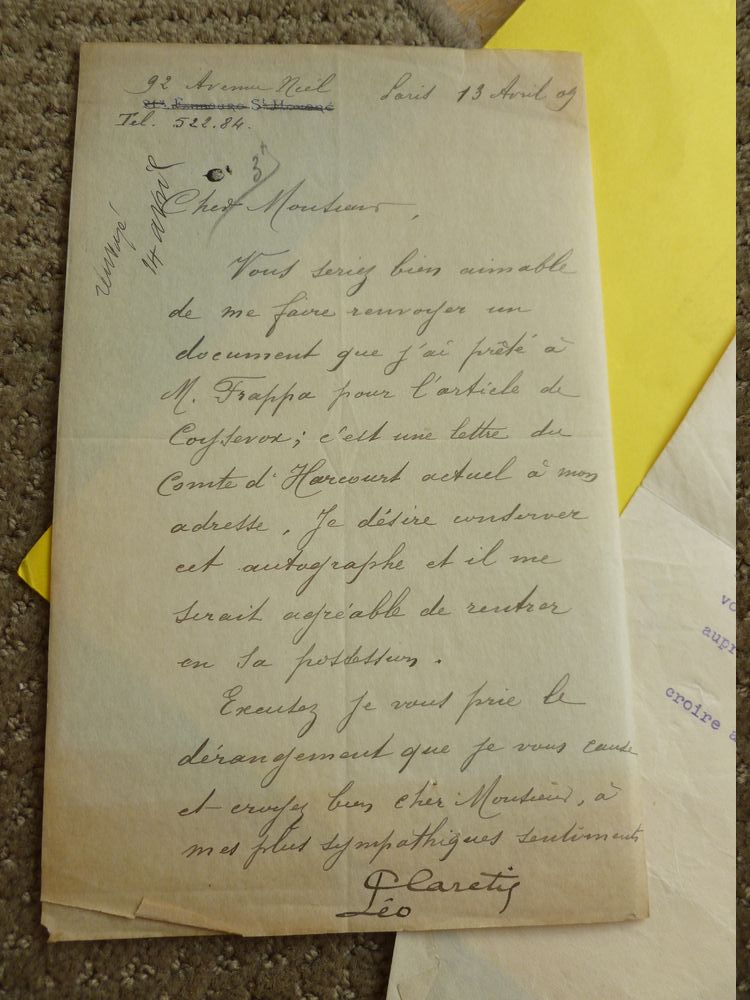 92 Avenue Niel
Paris 13 Avril 09
Faubourg St Honoré
Tel. 522.84.
renvoyé
14 avril
Cher Monsieur,
Vous seriez bien aimable
de me faire renvoyer un
document que j'ai prêté à
M. Frappa pour l'article de
Coysevox ; c'est une lettre du
Comte d'Harcourt actuel à mon
adresse. Je désire conserver
cet autographe et il me
serait agréable de rentrer
en sa possession.
Excusez je vous prie le
dérangement que je vous cause
et croyez bien cher Monsieur, à
mes plus sympathiques sentiments
Claretie
Léo
vo
aupr
croire a